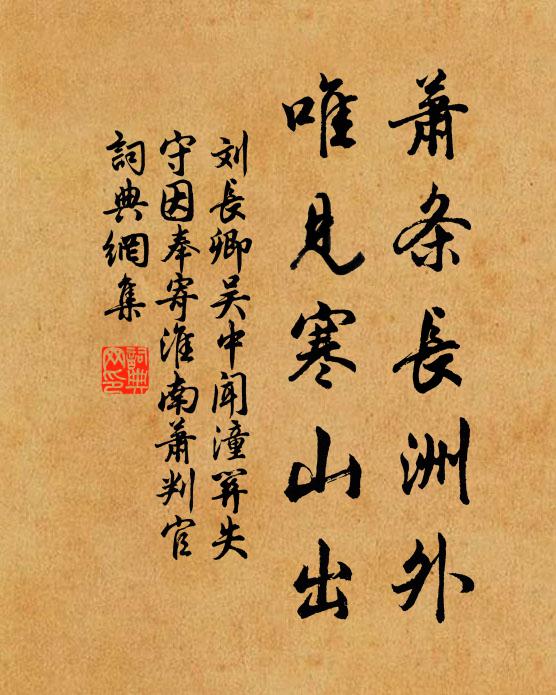 萧条長洲外
唯見寒山出
刘長卿吴中闻潼関失
守因奉寄淮南萧判官
詞典網集
詞典網印